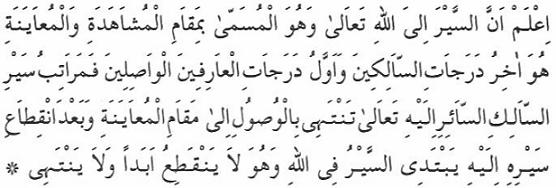 اِعْلَمْ اَنَّ السَّيْرَ اِلىَ اللهِ تَعَالىٰ وَهُوَ الْمُسَمّىٰ بِمَقَامِ الْمُشَاهَدَةِ وَالْمُعَايَنَةِ
هُوَ اٰخِرُ دَرَجَاتِ السَّالِكِينَ وَاَوَّلُ دَرَجَاتِ الْعَارِفِينَ الْوَاصِلِينَ فَمَرَاتِبُ سَيْرِ
السَّالِكِ السَّائِرِ اِلَيْهِ تَعَالىٰ تَنْتَهِى بِالْوُصُولِ اِلىٰ مَقَامِ الْمُعَايَنَةِ وَبَعْدَ انْقِطَاعِ
سَيْرِهِ اِلَيْهِ يَبْتَدِى السَّيْرُ فِى اللهِ وَهُوَ لاَ يَنْقَطِعُ اَبَداً وَلاَ يَنْتَهِى *